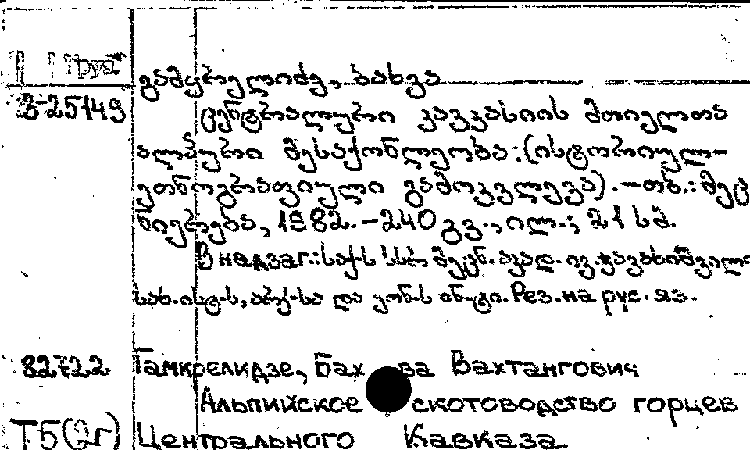 груз
გამყრელიძე, ბახვა
В-25149 ცენტრალური კავკასიის მთიელთა
ალპური მესაქონლეობა: (ისტორიულ-
ეთნოგრაფიული გამოკვლევა). - თბ.: მეც
ნიერება, 1982. - 240 გვ., ილ.; 21 სმ.
В надзаг.: საქ-ს სსრ მეცნ. აკად. ივ. ჯავახიშვილი
სახ. ისტ-ს, არქ-სა და ეთნ-ს ინ-ტი. Рез. на рус. яз.
82722 Гамкрелидзе, Бах ва Вахтангович
Альпийское скотоводство горцев
Т5(2г) Центрального Кавказа